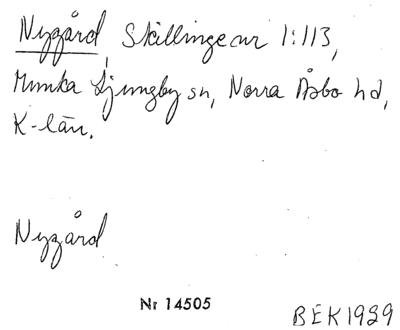 Nygård, Skillinge nr 1:113,
Munka Ljungby sn, Norra Åsbo hd,
K-län.
Nygård
Nr 14505
BEK 1929